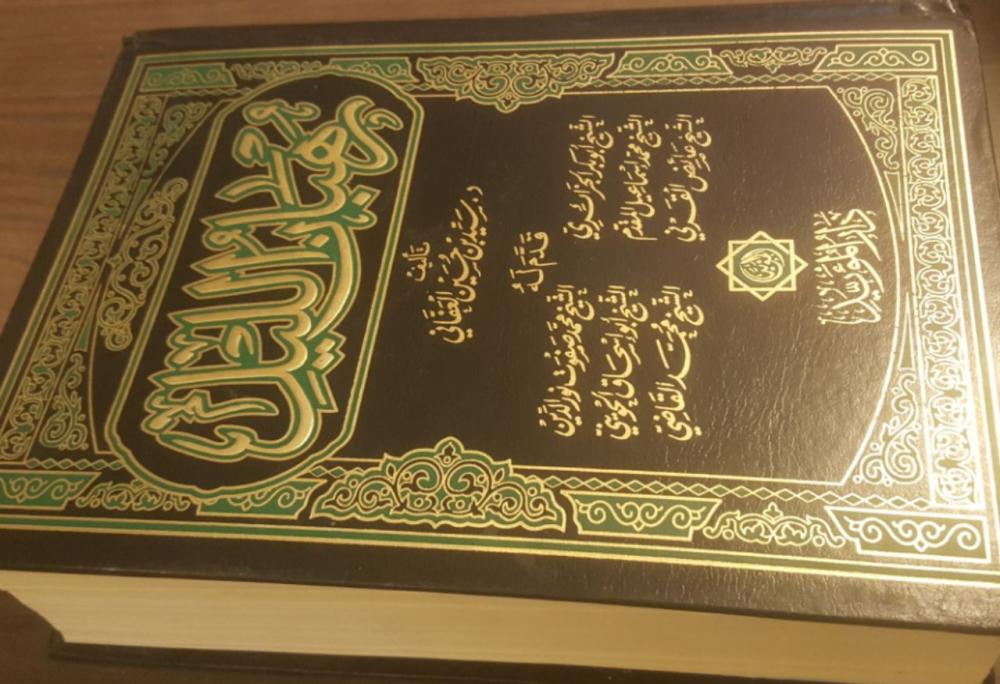 رهبان الليل
تأليف
د. سيد بن حسين العفاني
قدم له
الشيخ أبو بكر الجزائري الشيخ محمد صفوت نور الدين
الشيخ محمد إسماعيل المقدم الشيخ أبو إسحاق الحويني
الشيخ عايض القرني الشيخ محمد القاضي
دار المؤيد